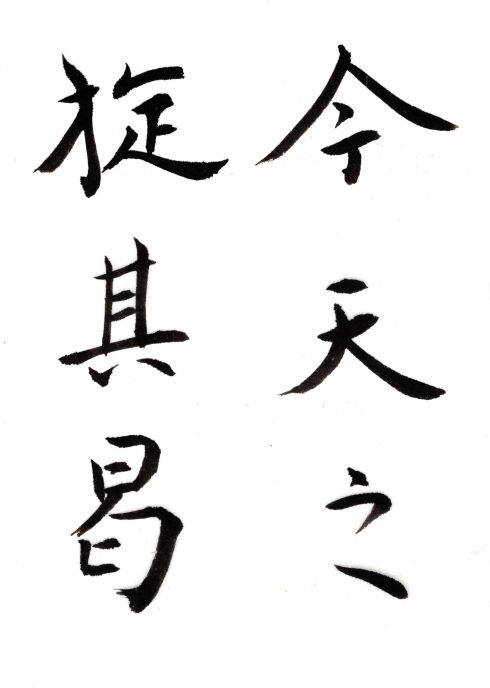 今天之
旋其曷